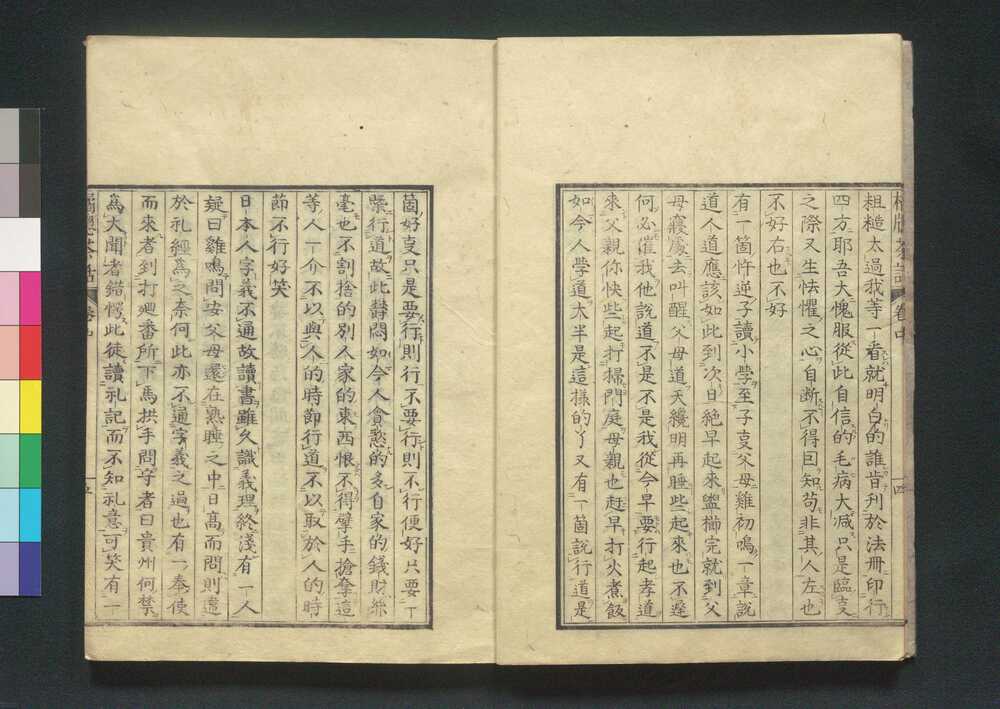 粗糙太過我等一看就明白的誰肯刋於法冊印行
四方耶吾大愧服從此自信的毛病大减只是臨㕝
之際又生怯懼之心自断不得囙知苟非其人左也
不好右也不好
有一箇忤逆子讀小學至子㕝父母雞初鳴一章說
道人道應該如此到次日絕早起來盥櫛完就到父
母寢處去叫醒父母道天纔明再睡些起來也不遲
何必催我他說道不是不是我從今早要行起孝道
來父親你快些起打掃門庭母親也趕早打火煮飯
如今人學道太半是這樣的丫又有一箇說行道是
四
箇好㕝只是要行則行不要行則不行便好只要一
槩行道故此
悶如今人貪愁的多自家的錢財絲
毫也不割捨的别人家的東西恨不得擘手搶奪這
等人一介不以與人的時節行道不以取於人的時
節不行好笑
日本人字義不通故讀書雖久識義理終淺有一人
疑曰雞鳴問安父母還在熟睡之中日髙而問則違
於礼經爲之奈何此亦不通字義之過也有一奉使
而來者到打廻番所下馬拱手問守者曰貴州何禁
爲大聞者錯愕此徒讀礼記而不知礼意可笑有一
茶話
卷中
五